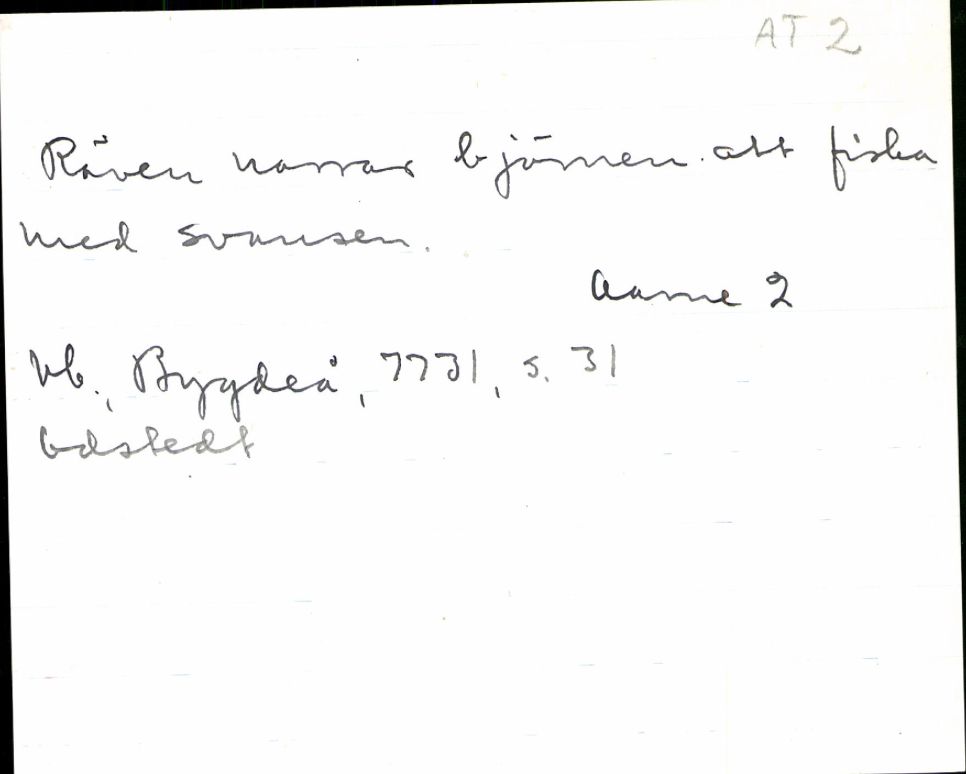 AT 2
Räven narrar björnen att fiska
med svansen.
Aarne 2
Vb., Bygdeå, 7731, s. 31
Edstedt